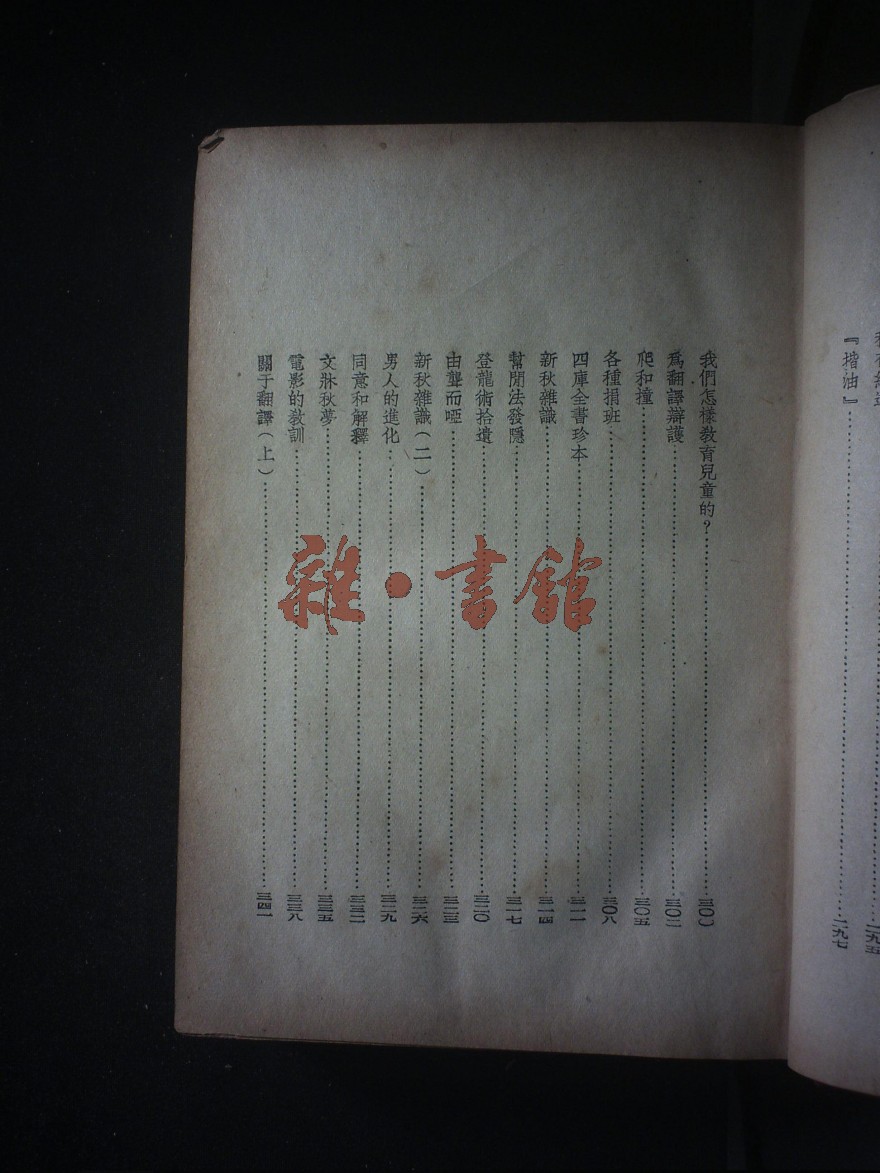 二九五
『揩油』……二九七
我們怎樣敎育兒童的？……三〇一
爲翻譯辯護……三〇三
爬和撞……三〇五
各種捐班……三〇八
四庫全書珍本……三一一
新秋雜識……三一四
幫閒法發隱……三一七
登龍術拾遺……三二〇
由聾而啞……三二三
新秋雜識（二）……三二六
男人的進化……三二九
同意和解釋……三三二
文牀秋夢……三三五
電影的敎訓……三三八
關于翻譯（上）……三四一
雜·書館